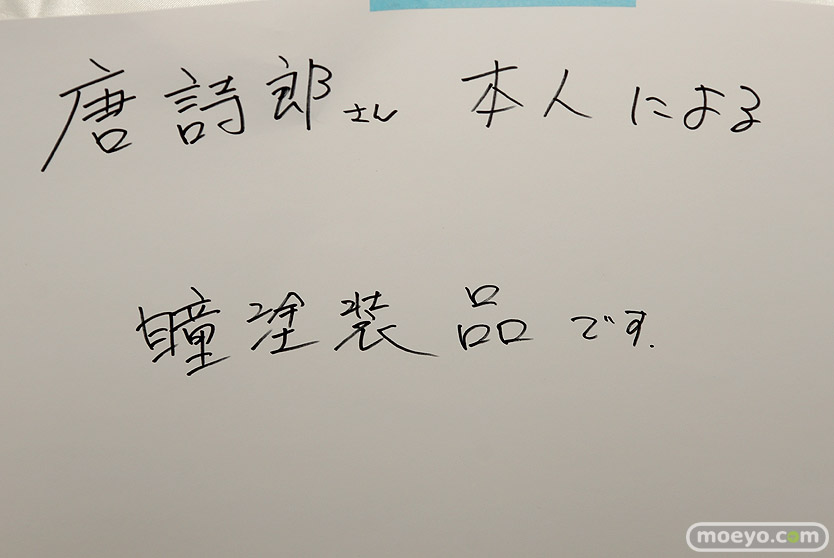 唐詩郎さん 本人による
瞳塗装品です.
moeyo.com